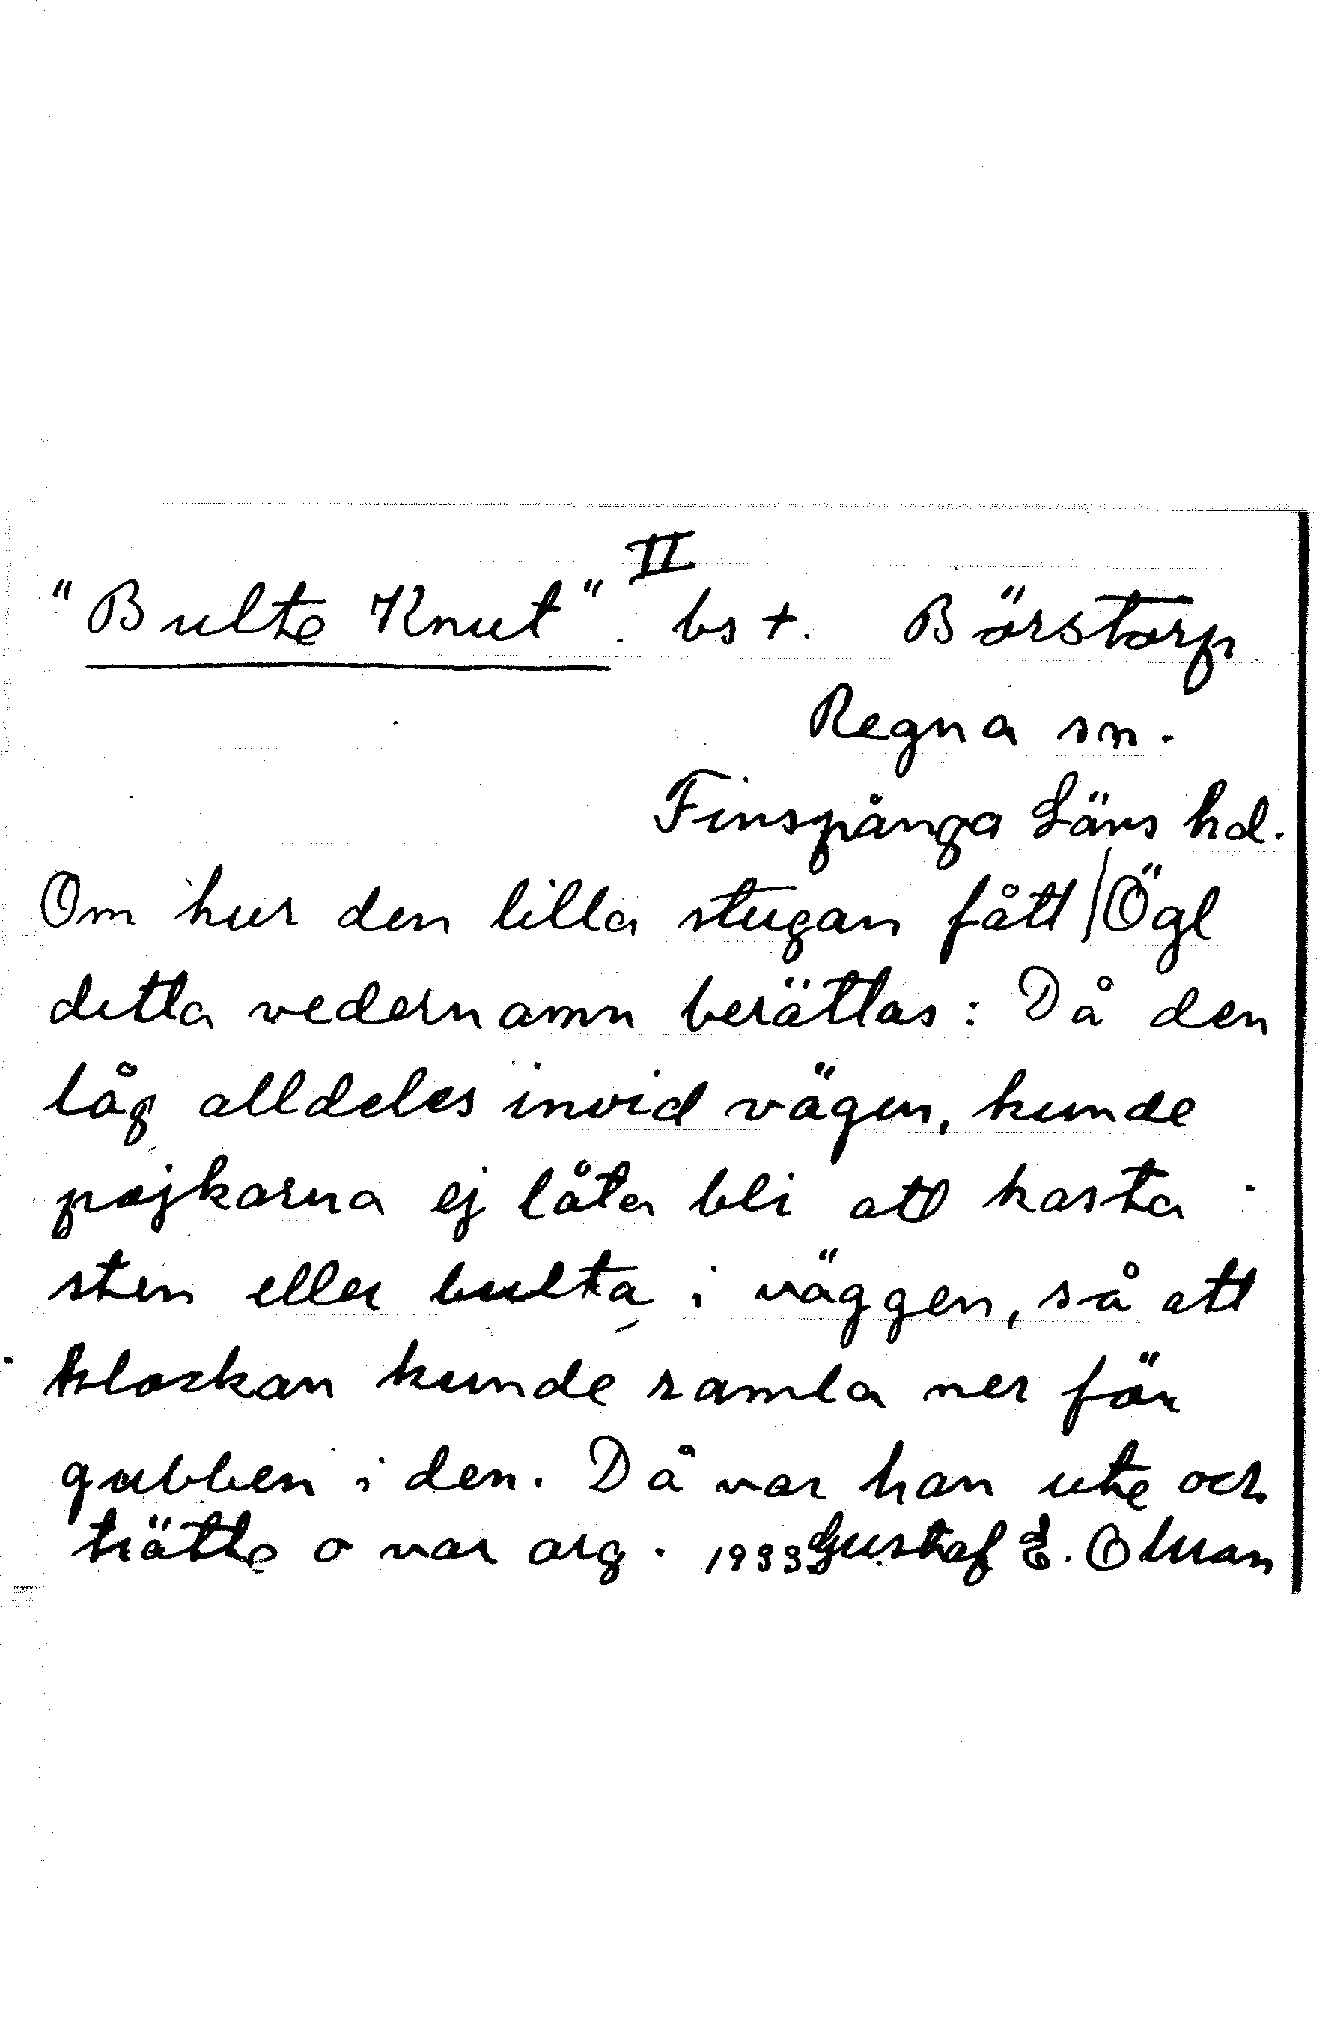 II
"Bulte Knut". bs +. Börstorp
Regna sn.
Finspånga Läns hd.
Om hur den lilla stugan fått / Ögl
detta vedernamn berättas: Då den
låg alldeles invid vägen, kunde
pojkarna ej låta bli att kasta
sten eller bulta i väggen, så att
klockan kunde ramla ner för
gubben i den. Då var han ute och
trätte o var arg. 1933 Gustaf E.